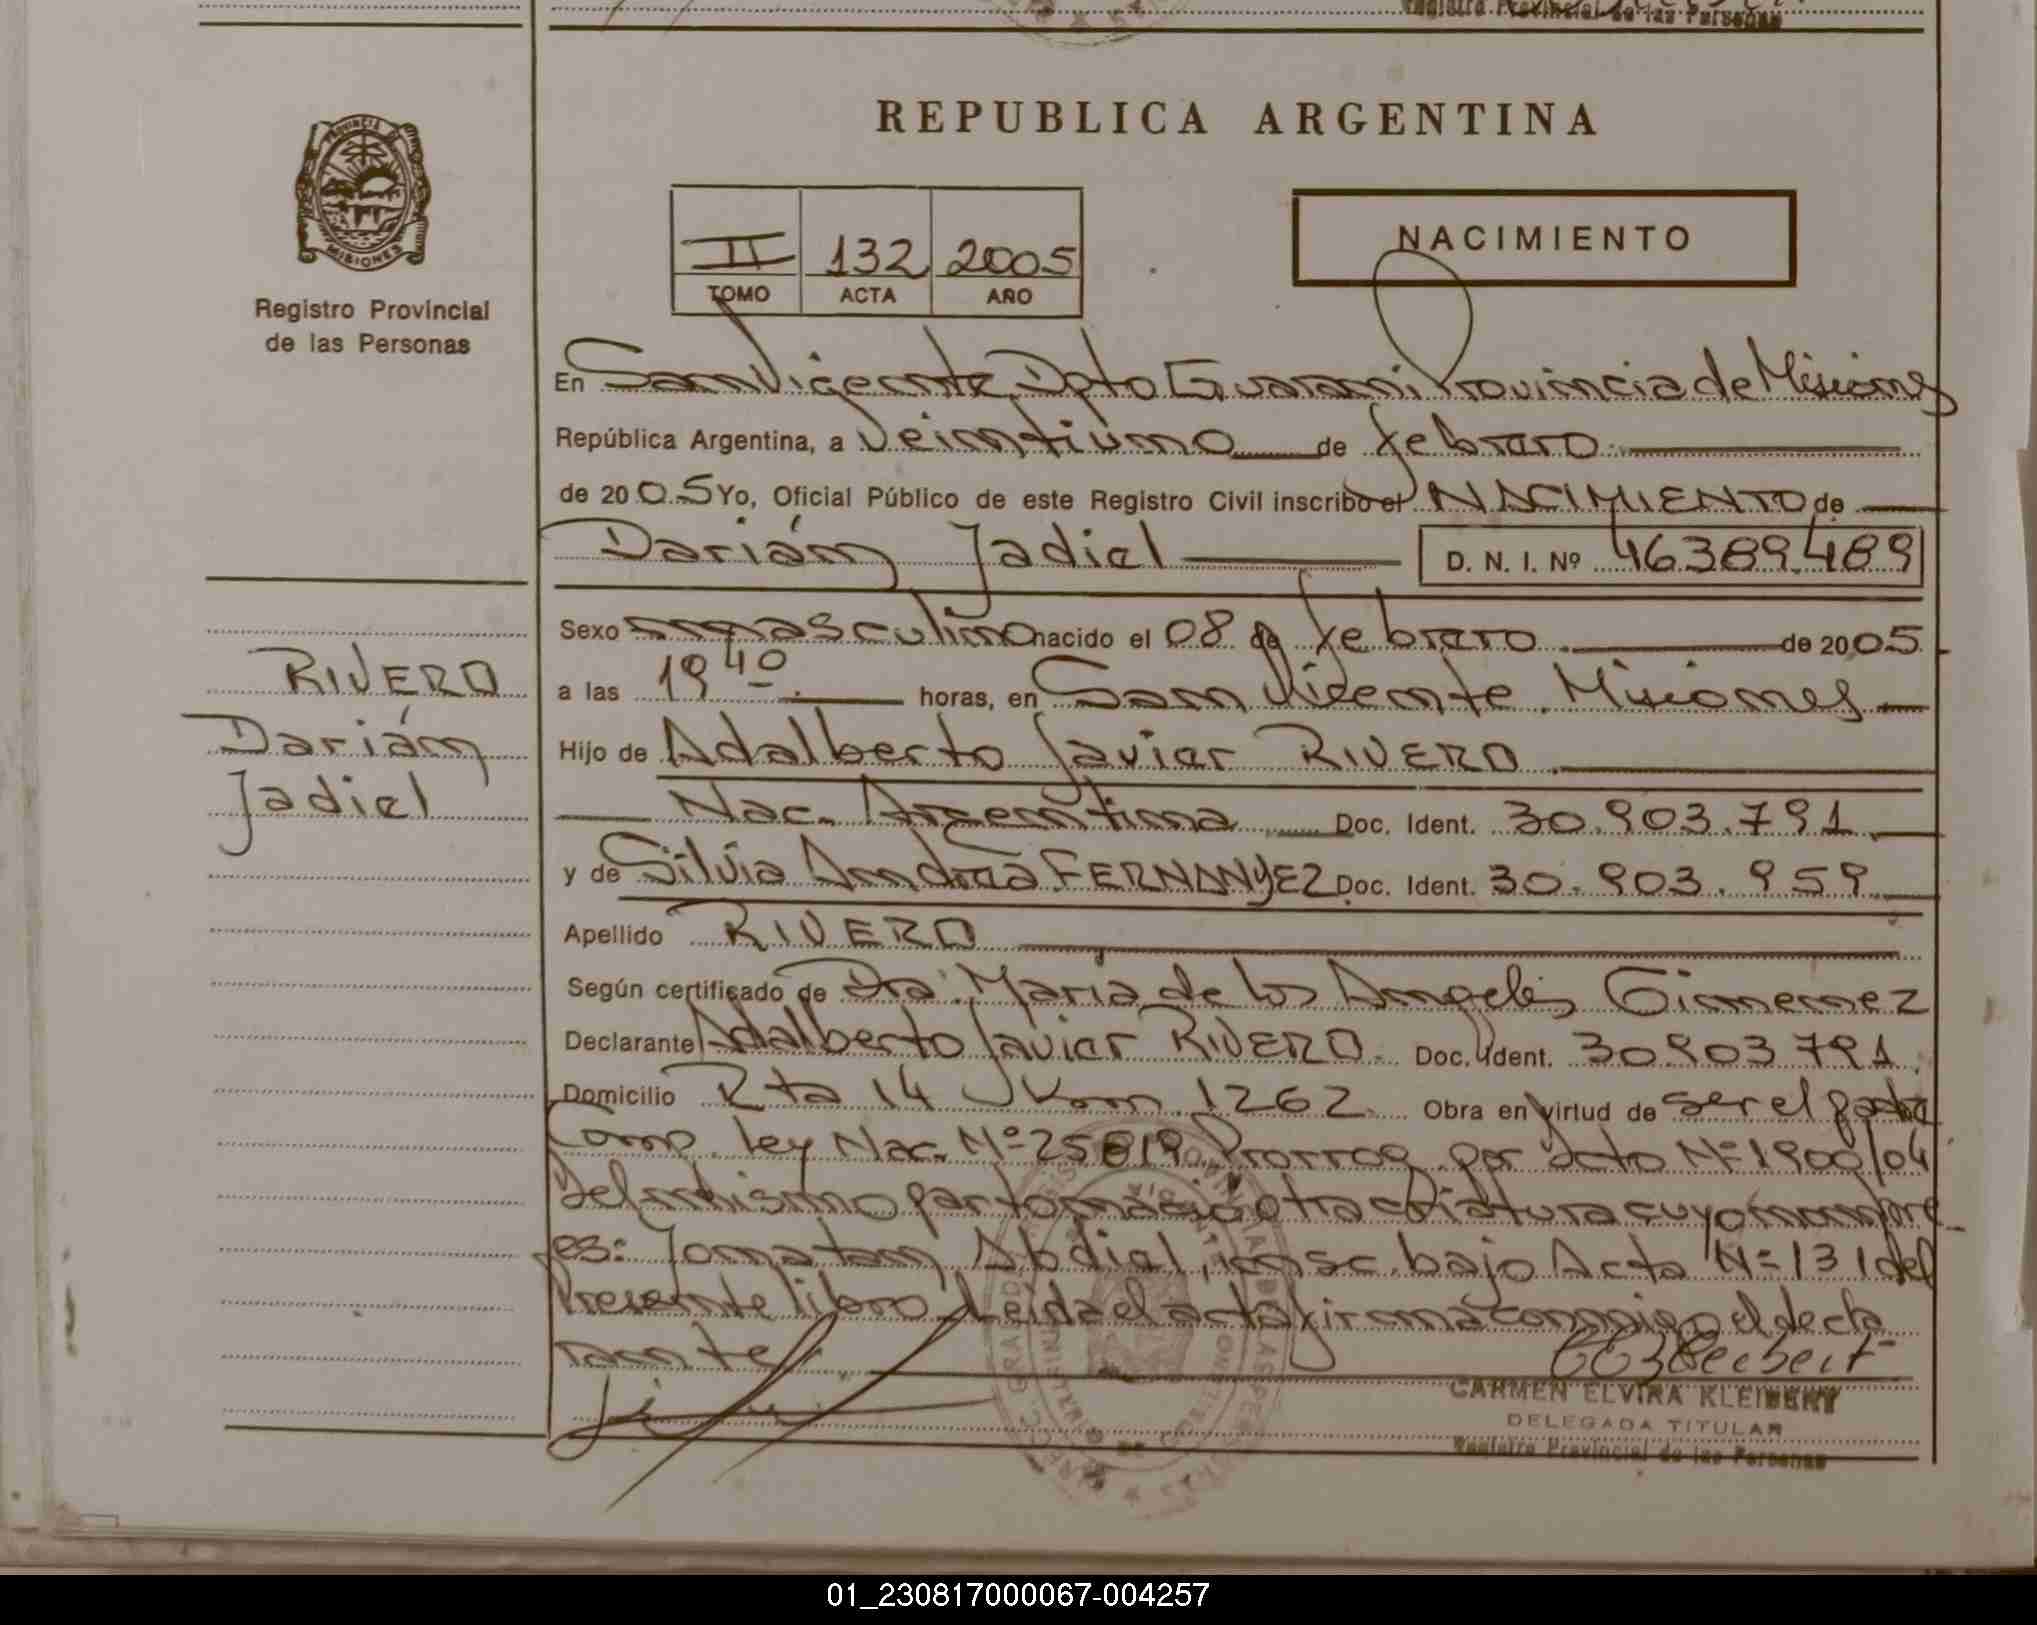 Registro Provincial de las Personas
REPUBLICA ARGENTINA
PROVINCIA DE
MISIONES
Registro Provincial
de las Personas
II 132 2005
TOMO ACTA AÑO
NACIMIENTO
En San Vicente Dpto Guaraní Provincia de Misiones
República Argentina, a Veintiuno de febrero
de 2005 Yo, Oficial Público de este Registro Civil inscribo el NACIMIENTO de
Darián Jadiel D. N. I. Nº 46389.489
Sexo masculino nacido el 08 de febrero de 2005
a las 19 40 horas, en San Vicente. Misiones
Hijo de Adalberto Javier RIVERO
Nac. Argentina Doc. Ident. 30.903.791
y de Silvia Andrea FERNANDEZ Doc. Ident. 30.903.959
Apellido RIVERO
Según certificado de Dra. María de los Angeles Gimenez
Declarante Adalberto Javier RIVERO. Doc. Ident. 30.903.791
Domicilio Rta 14 Km 1262 Obra en virtud de ser el padre
Comp. ley Nac. Nº 25819 Prorrog. por Dcto Nº 1900/04
Del mismo parto nació otra criatura cuyo nombre
es: Jonatan Abdiel, insc. bajo Acta Nº 131 del
Presente libro. Leida el acta firma conmigo el decla
rante.
CARMEN ELVIRA
DELEGADA TITULAR
Registro Provincial de las Personas
RIVERO
Darián
Jadiel
01_230817000067-004257